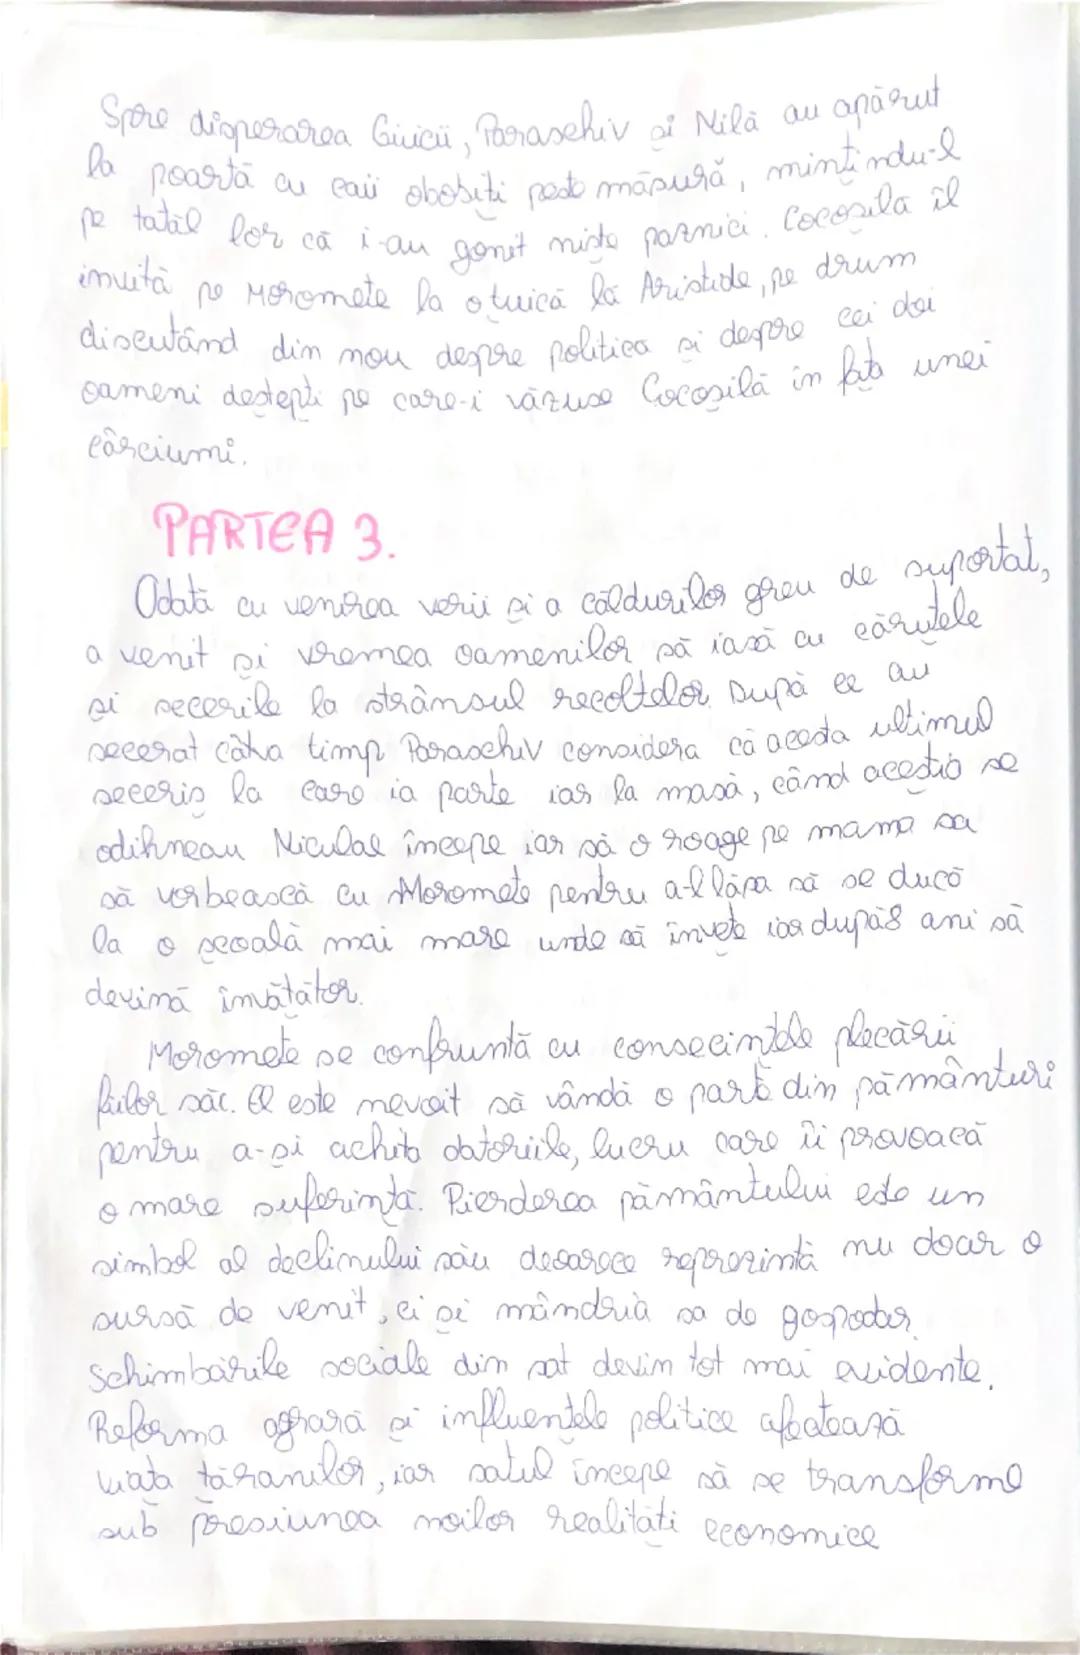 Spre disperarea Guicii, Paraschiv și Nilă au apărut
la poartă cu caii obosiți peste măsură, mințindu-l
pe tatăl lor că i-au gonit niște paznici. Cocoșilă îl
invită pe Moromete la o țuică la Aristide, pe drum
discutând din nou despre politica și despre cei doi
oameni deștepți pe care-i văzuse Cocoșilă în fața unei
cârciumi.
PARTEA 3.
Odată cu venirea verii și a căldurilor greu de suportat,
a venit și vremea oamenilor să iasă cu căruțele
și secerile la strânsul recoltelor. După ce au
secerat câtva timp Paraschiv considera că acesta ultimul
seceriș la care ia parte iar la masă, când aceștia se
odihneau Niculae începe iar să o roage pe mama sa
să vorbească cu Moromete pentru a-l lăsa să se ducă
la o școală mai mare unde să învețe iar după 8 ani să
devină învățător.
Moromete se confruntă cu consecințele plecării
fiilor săi. El este nevoit să vândă o parte din pământuri
pentru a-și achita datoriile, lucru care îi provoacă
o mare suferință. Pierderea pământului este un
simbol al declinului său deoarece reprezintă nu doar o
sursă de venit, ci și mândria sa de gospodar.
Schimbările sociale din sat devin tot mai evidente.
Reforma agrară și influențele politice afectează
viața țăranilor, iar satul începe să se transforme
sub presiunea noilor realități economice